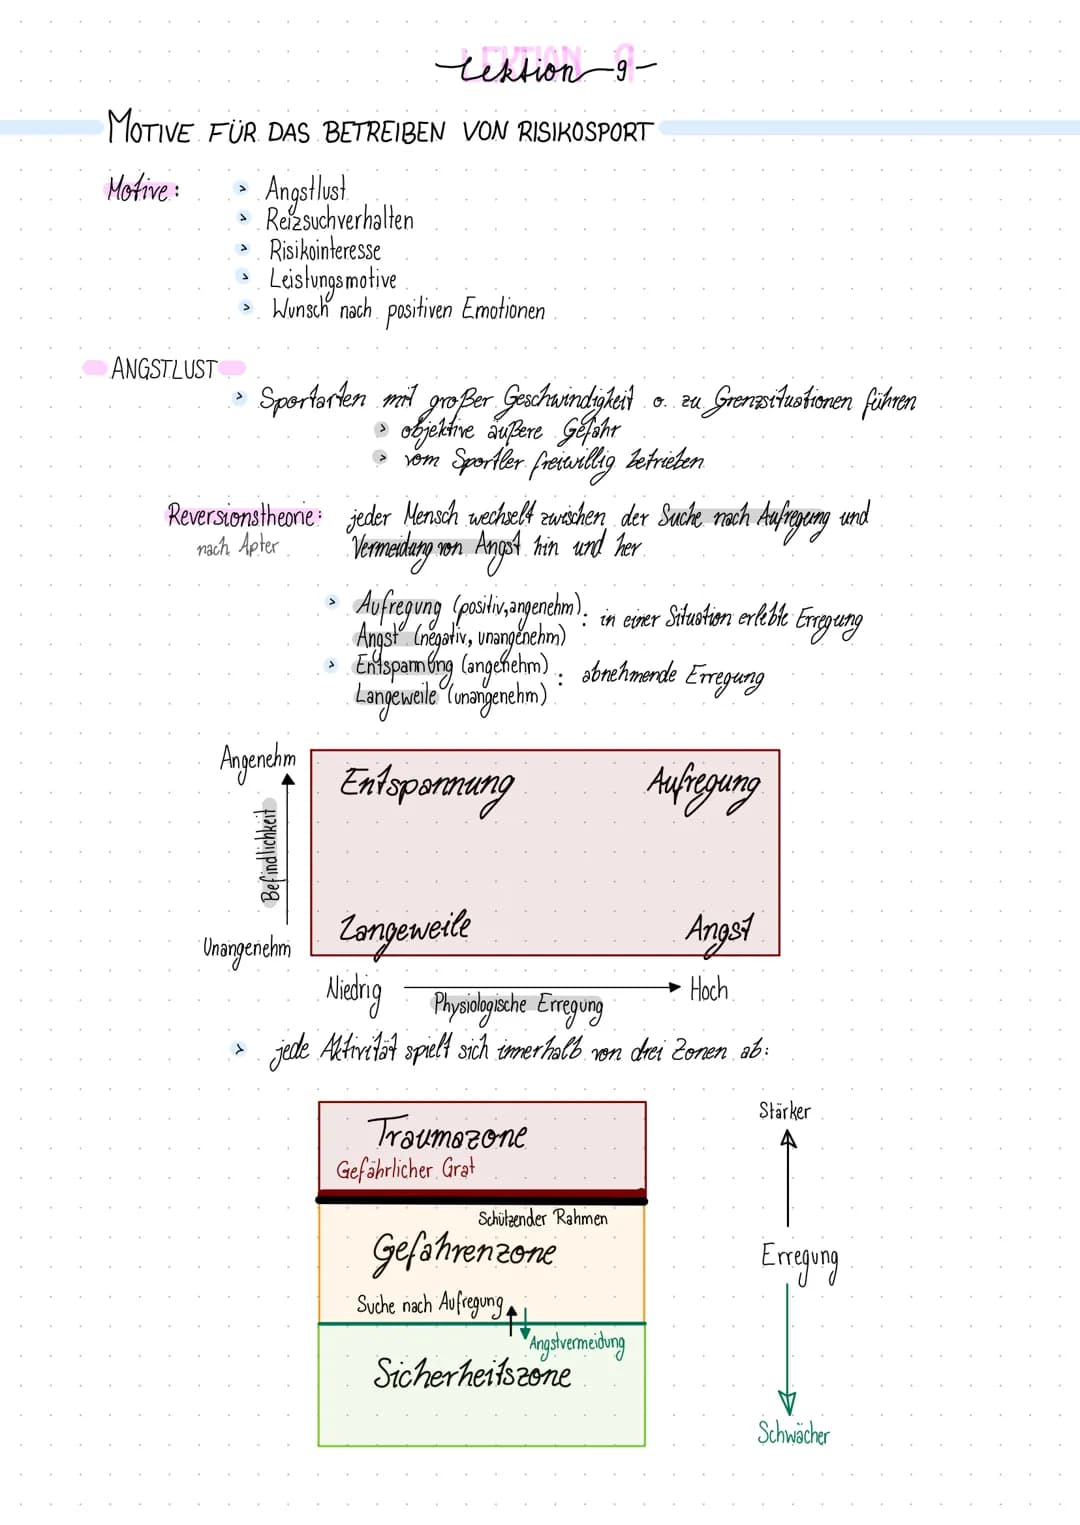 Lektion -9-
MOTIVE FÜR DAS BETREIBEN VON RISIKOSPORT
Motive:
> Angstlust
> Reizsuchverhalten
> Risikointeresse
> Leistungsmotive
> Wunsch nach positiven Emotionen
ANGSTLUST
> Sportarten mit großer Geschwindigkeit o. zu Grenzsituationen führen
> objektive äußere Gefahr
> vom Sportler freiwillig betrieben
Reversionstheorie: jeder Mensch wechselt zwischen der Suche nach Aufregung und
nach Apter Vermeidung von Angst hin und her
> Aufregung (positiv, angenehm): in einer Situation erlebte Erregung
Angst (negativ, unangenehm)
> Entspannung (angenehm) : abnehmende Erregung
Langeweile (unangenehm)
Angenehm
Entspannung Aufregung
Befindlichkeit
Langeweile Angst
Unangenehm
Niedrig Physiologische Erregung Hoch
> jede Aktivität spielt sich innerhalb von drei Zonen ab:
Traumazone
Gefährlicher Grat
Schützender Rahmen
Gefahrenzone
Suche nach Aufregung
Angstvermeidung
Sicherheitszone
Stärker
Erregung
Schwächer